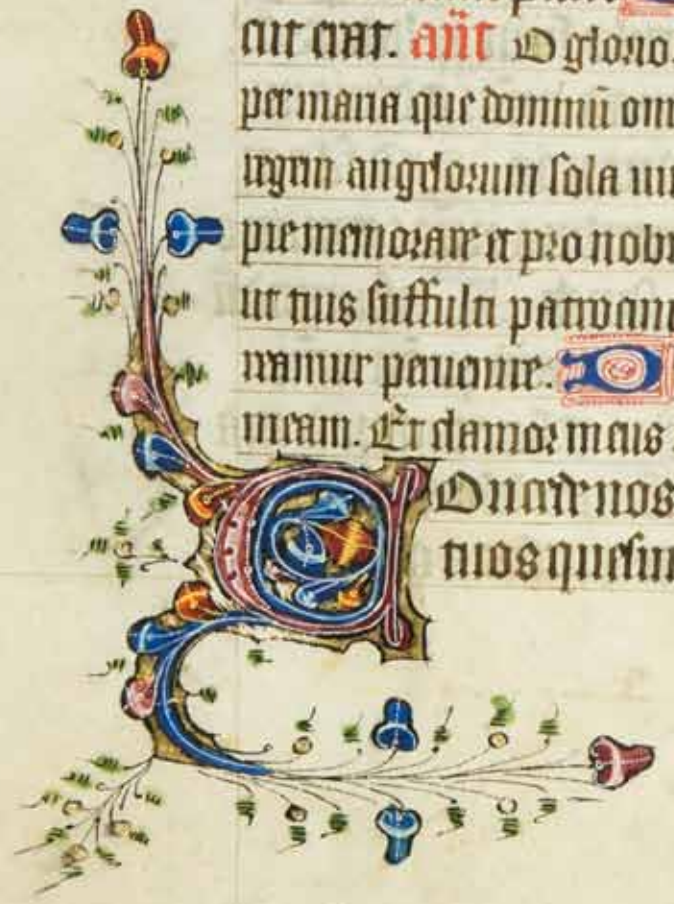 cut erat. añt O glorio
per maria que dominū om
regem angelorum sola ui
pie memorare et pro nobi
ut tuis suffulti patrocini
reamur peruenire: D
meam. Et clamor meus
COncede nos
tuos quesum